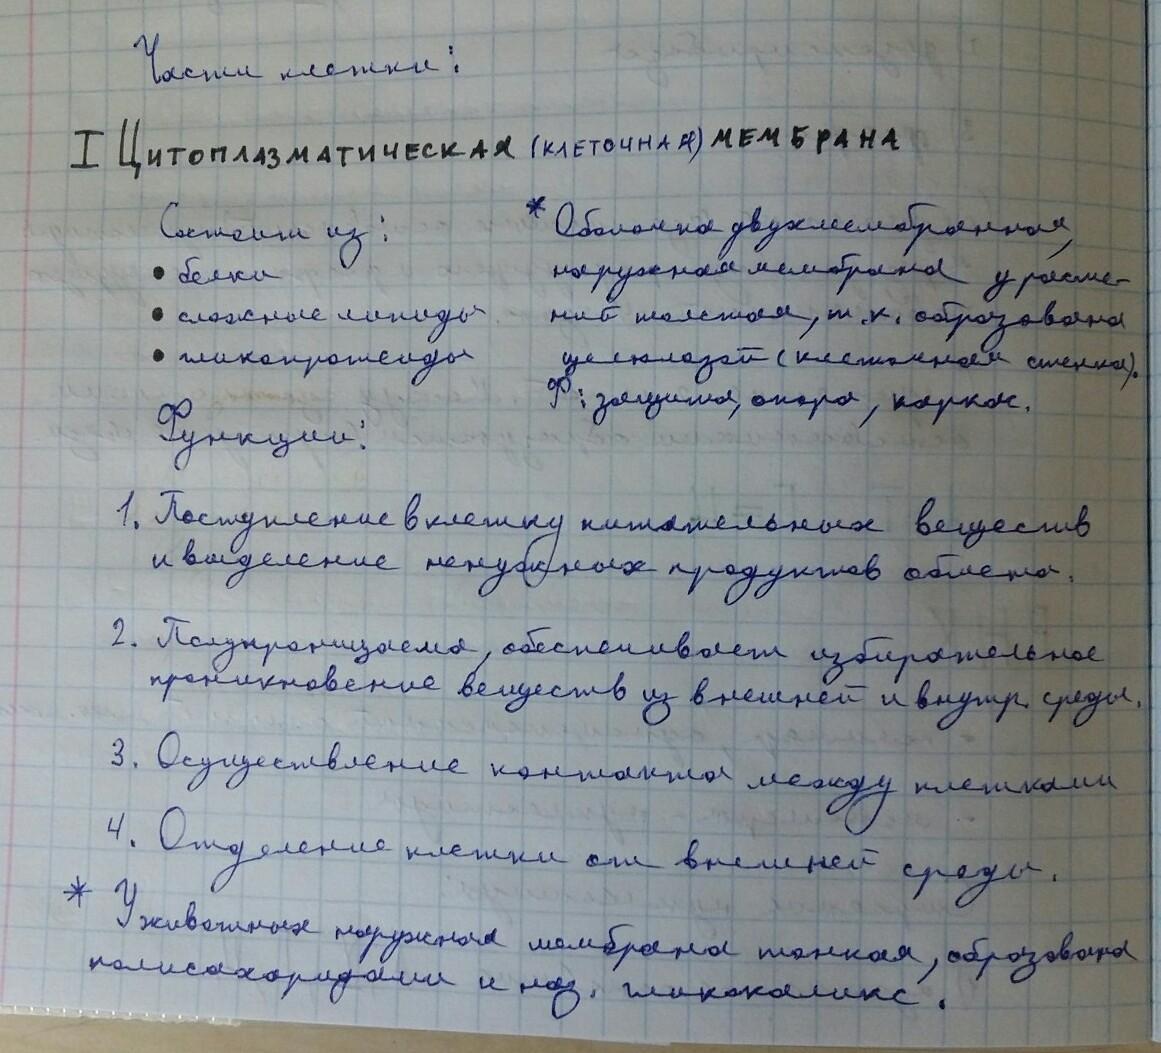 Части клетки:
I Цитоплазматическая (клеточная) мембрана
Состоит из:
• белки
• сложные липиды
• гликопротеиды
* Оболочка двухмембранная,
наружная мембрана у расте-
ний толстая, т.к. образована
целюлазой (клеточная стенка).
Ф: защита, опора, каркас.
Функции:
1. Поступление в клетку питательных веществ
и выделение ненужных продуктов обмена.
2. Полупроницаема, обеспечивает избирательное
проникновение веществ из внешней и внутр. среды.
3. Осуществление контакта между клетками
4. Отделение клетки от внешней среды.
* У животных наружная мембрана тонкая, образована
полисахаридами и наз. гликокаликс.